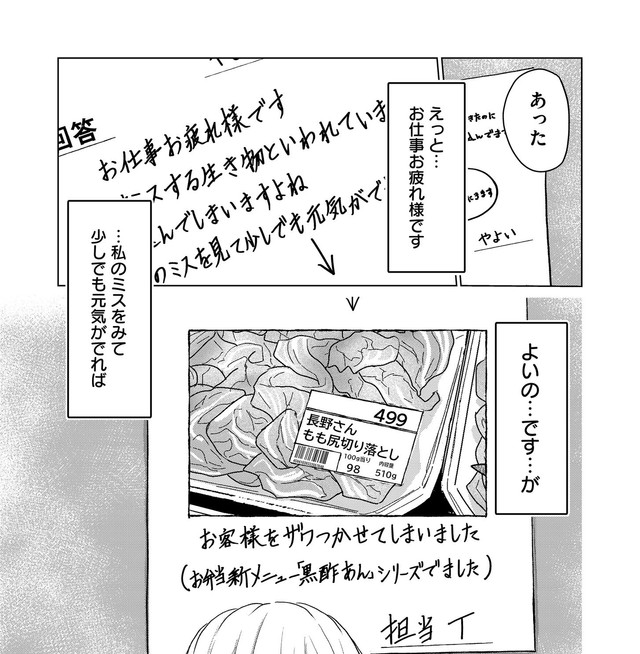 あった
きたのに
にきます
やよい
えっと…
お仕事お疲れ様です
回答
お仕事お疲れ様です
スする生き物といわれていま
んでしまいますよね
のミスを見て少しでも元気がで
…私のミスをみて
少しでも元気がでれば
よいの…です…が
499
長野さん
もも尻切り落とし
100g当り
内容量
98
510g
お客様をザワつかせてしまいました
(お弁当新メニュー「黒酢あん」シリーズでました)
担当 T